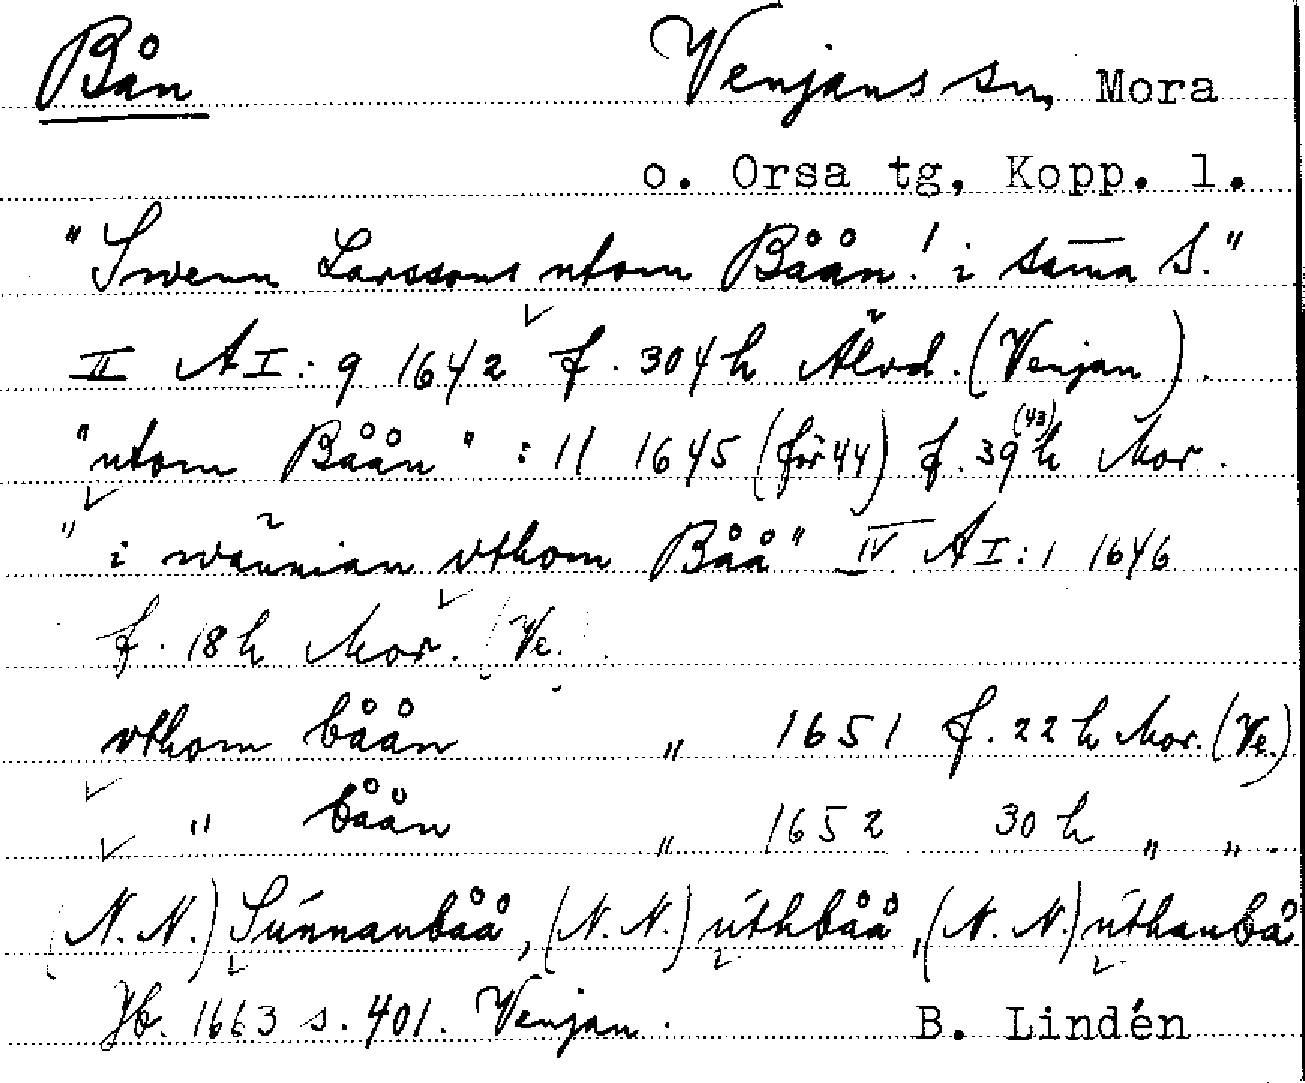 Bån Venjans sn, Mora
o. Orsa tg, Kopp. l.
"Swenn Larssons utom Båån! i sam̄a S."
II A I: 9 1642 f. 304 h Älvd. (Venjan).
"utom Båån" : 11 1645 (för 44) f. 39 (43) h Mor.
"i wännian vthom Båå" IV A I: 1 1646
f. 18 h Mor. (Ve.)
vthom båån „ 1651 f. 22 h Mor. (Ve.)
„ båån „ 1652 30 h „ „.
(N. N.) Súnnanbåå, (N. N.) úthbåå, (N. N.) úthanbå
Jb. 1663 s. 401. Venjan. B. Lindén